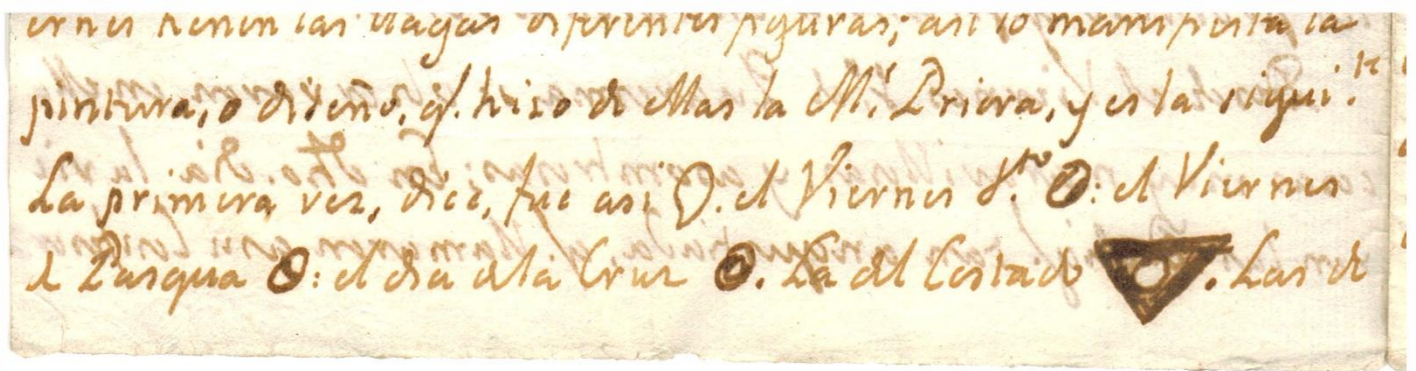 ernes tienen las llagas diferentes figuras; asi lo manifiesta la
pintura, o diseño, q.e hizo de ellas la M.e Priora, y es la sigui.te
La primera vez, dice, fue asi . el Viernes S.to : el Viernes
de Pasqua : el dia de la Cruz . La del Costado . Las de